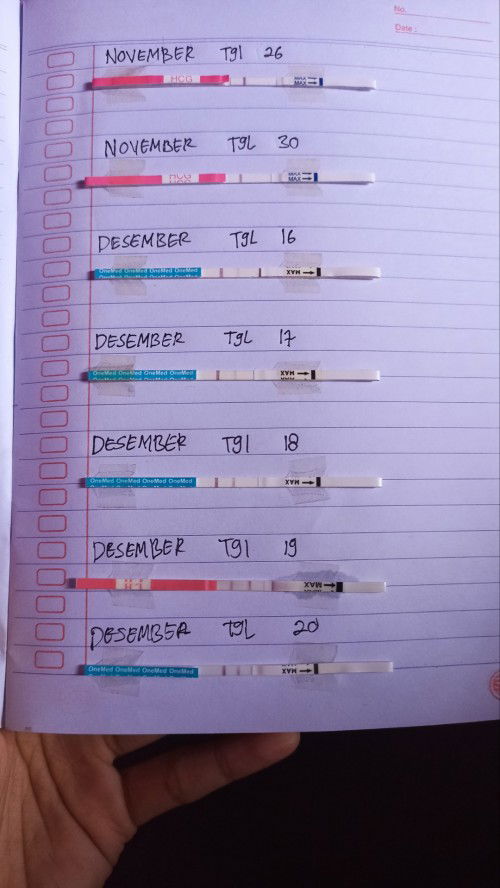 No.
Date :
NOVEMBER Tgl 26
HCG MAX
MAX
NOVEMBER TgL 30
HCG MAX
HCG MAX
DESEMBER TgL 16
OneMed OneMed OneMed OneMed MAX
OneMed OneMed OneMed OneMed
DESEMBER TgL 17
OneMed OneMed OneMed OneMed MAX
DESEMBER Tgl 18
OneMed OneMed OneMed OneMed MAX
DESEMBER Tgl 19
MAX
DESEMBER TgL 20
OneMed OneMed OneMed OneMed MAX